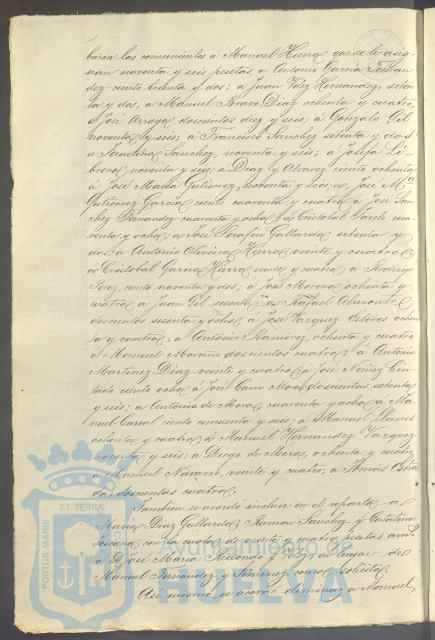 baron los concernientes á Manuel Hierro que se le asig-
nan noventa y seis pesetas, á Antonio García Fernan-
dez ciento treinta y dos; á Juan Velez Hernandez, seten-
ta y dos, á Manuel Bravo Diaz ochenta y cuatro,
á José Arroyo doscientos diez y seis; á Gonzalo Gil
noventa y seis; á Francisco Sanchez setenta y dos:
á Faustino Sanchez, noventa y seis; á Josefa
noventa y seis, á Diaz y Alvarez ciento ochenta
á José Maria Gutierrez, noventa y seis; á José Mª
Gutierrez García ciento cuarenta y cuatro, á José San-
chez Fernandez cuarenta y ocho, á Cristobal cua-
renta y ocho, á José Serafin Gallardo, setenta y
dos, á Antonio Oliveira Hierro veinte y cuatro
á Cristobal García Hierro veinte y cuatro, á Rodrigo
Perez, ciento noventa y dos; á José Moreno, ochenta y
cuatro, á Juan Gil sesenta, á Rafael Almonte
doscientos sesenta y ocho, á José Vazquez ochen-
ta y cuatro; á Antonio Ramirez, ochenta y cuatro
á Manuel Moraño doscientos cuatro, á Antonio
Martinez Diaz veinte y cuatro, á José Nuñez Cen-
tado ciento ocho á José Cano Mora doscientos setenta
y seis; á Antonio de Mora, cuarenta y ocho, á Ma-
nuel Corral ciento cincuenta y seis; á Manuel Llanes
ochenta y cuatro, á Manuel Hernandez Vazquez
noventa y seis, á Diego de Mora, ochenta y cuatro
á Manuel Navarro, veinte y cuatro, á Amós
doscientos cuatro.
Tambien se acordó incluir en el reparto á
Maria Diaz Gallardo, Ramon Sanchez y Catalina
Toscano, con la cuota de veinte y cuatro pesetas
á D. José Maria Redondo y Velez en lugar de
Manuel Fernandez y Jimenez como solicita.
Asi mismo se acordó eliminar á Manuel
PORTUS MARIS ET TERRAE
Ayuntamiento de
HUELVA